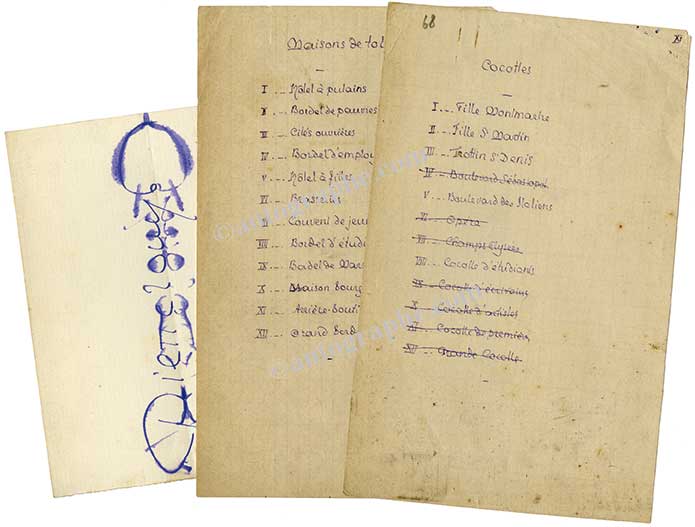 Pierre Louÿs
Maisons de tol
I -- Hôtel à putains
II -- Bordel de pauvres
III -- Cités ouvrières
IV -- Bordel d'employ
V -- Hôtel à filles
VI -- Brasseries
VII -- Couvent de jeun
VIII -- Bordel d'étudi
IX -- Bordel de Mar
X -- Maison bourg
XI -- Arrière-bouti
XII -- Grand bord
68
XI
Cocottes
I -- Fille Montmartre
II -- Fille St Martin
III -- Trottin St Denis
IV -- Boulevard Sébastopol
V -- Boulevard des Italiens
VI -- Opéra
VII -- Champs Elysées
VIII -- Cocotte d'étudiants
IX -- Cocotte d'écrivains
X -- Cocotte d'artistes
XI -- Cocotte de première
XII -- Grande Cocotte